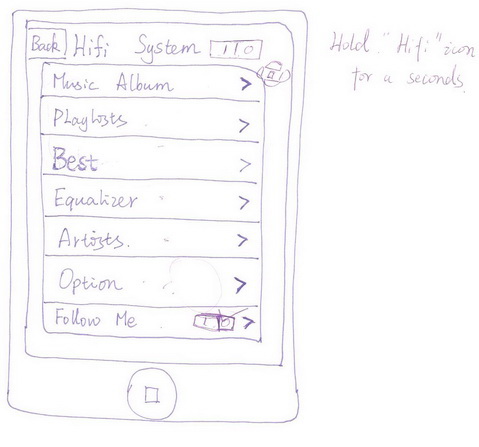 Back Hifi System 1 0
Music Album >
Playlists >
Best >
Equalizer >
Artists. >
Option >
Follow Me >
Hold "Hifi" icon
for a seconds.